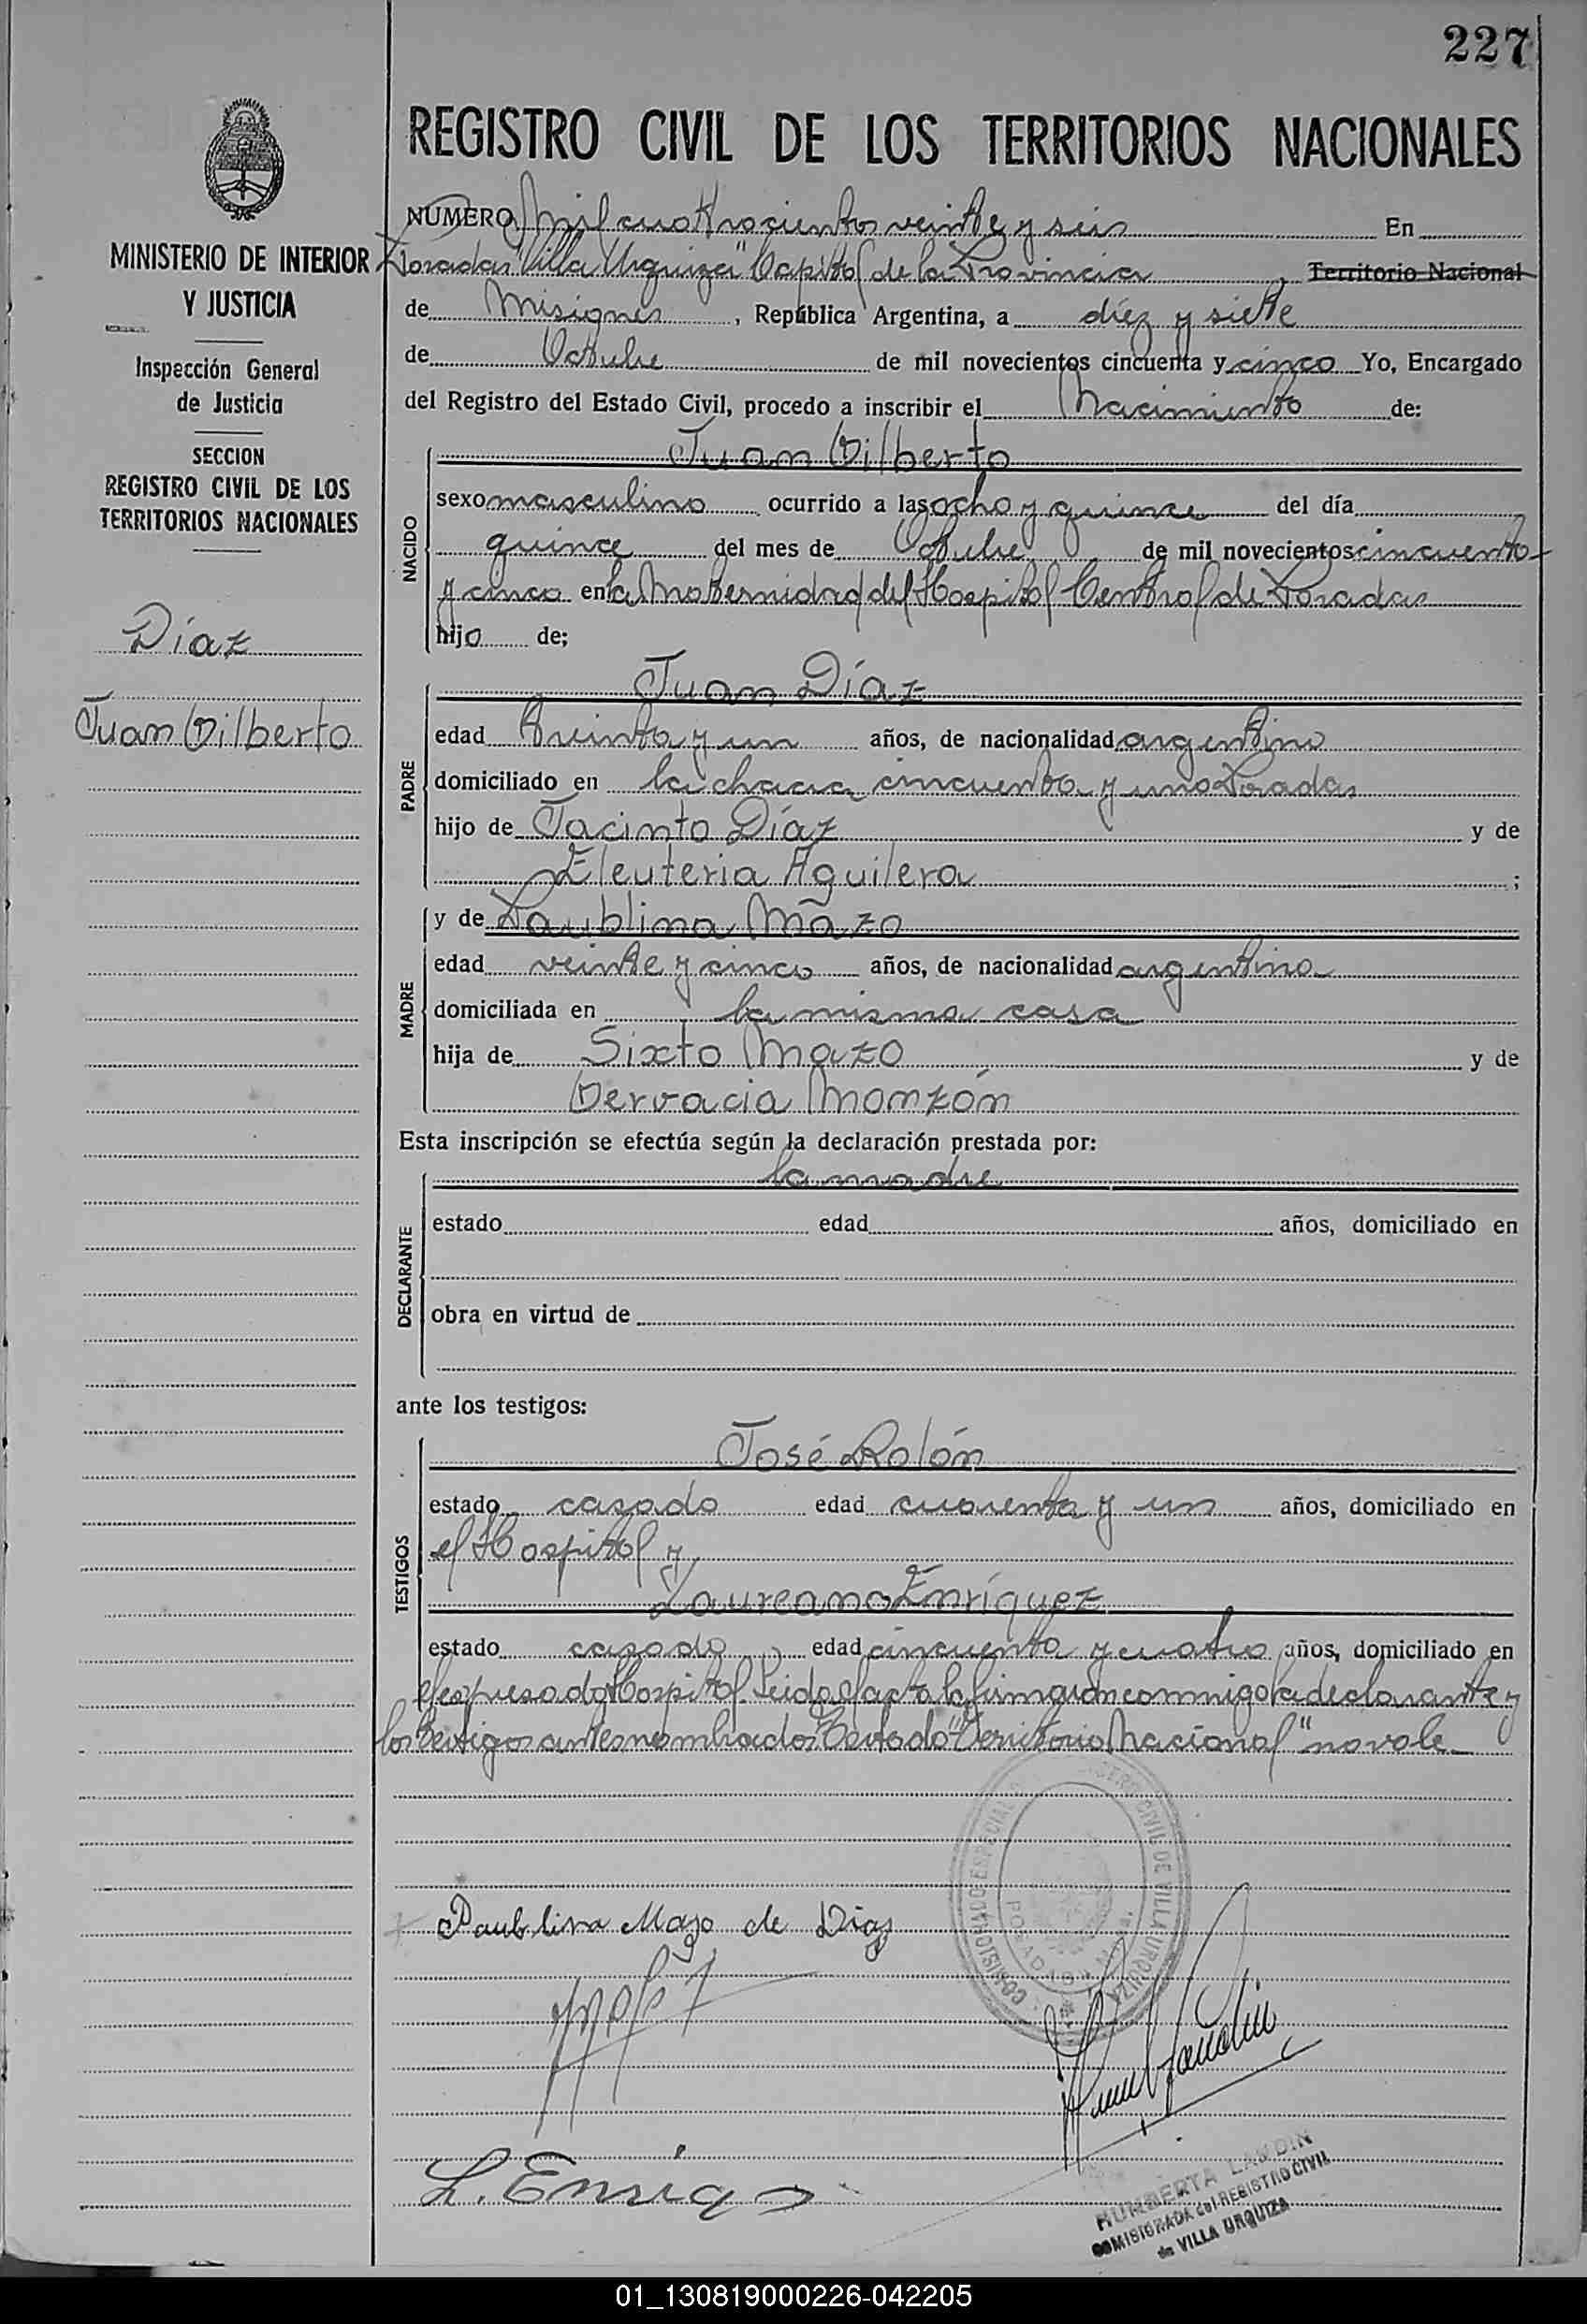 227
MINISTERIO DE INTERIOR
Y JUSTICIA
Inspección General
de Justicia
SECCION
REGISTRO CIVIL DE LOS
TERRITORIOS NACIONALES
Díaz
Juan Gilberto
REGISTRO CIVIL DE LOS TERRITORIOS NACIONALES
NUMERO Mil cuatrocientos veinte y seis En
Posadas "Villa Urquiza" Capital de la Provincia, Territorio Nacional
de Misiones, República Argentina, a diez y siete
de Octubre de mil novecientos cincuenta y cinco Yo, Encargado
del Registro del Estado Civil, procedo a inscribir el Nacimiento de:
NACIDO
Juan Gilberto
sexo masculino ocurrido a las ocho y quince del día
quince del mes de Octubre de mil novecientos cincuenta
y cinco en la Maternidad del Hospital Central de Posadas
hijo de;
PADRE
Juan Díaz
edad treinta y un años, de nacionalidad argentino
domiciliado en la chacra cincuenta y uno Posadas
hijo de Jacinto Díaz y de
Eleuteria Aguilera ;
MADRE
y de Paublina Mazo
edad veinte y cinco años, de nacionalidad argentina
domiciliada en la misma casa
hija de Sixto Mazo y de
Gervacia Monzón
Esta inscripción se efectúa según la declaración prestada por:
DECLARANTE
la madre
estado edad años, domiciliado en
obra en virtud de
ante los testigos:
TESTIGOS
José Rolón
estado casado edad cuarenta y un años, domiciliado en
el Hospital y
Laureano Enríquez
estado casado edad cincuenta y cuatro años, domiciliado en
el expresado Hospital. Leida el acta la firmaron conmigo la declarante y
los testigos antes nombrados Testado "Territorio Nacional" no vale
Paublina Mazo de Diaz
COMISIONADO ESPECIAL REGISTRO CIVIL DE VILLA URQUIZA
POSADAS
L. Enriq
HUMBERTA LANDIN
COMISIONADA del REGISTRO CIVIL
de VILLA URQUIZA
01_130819000226-042205